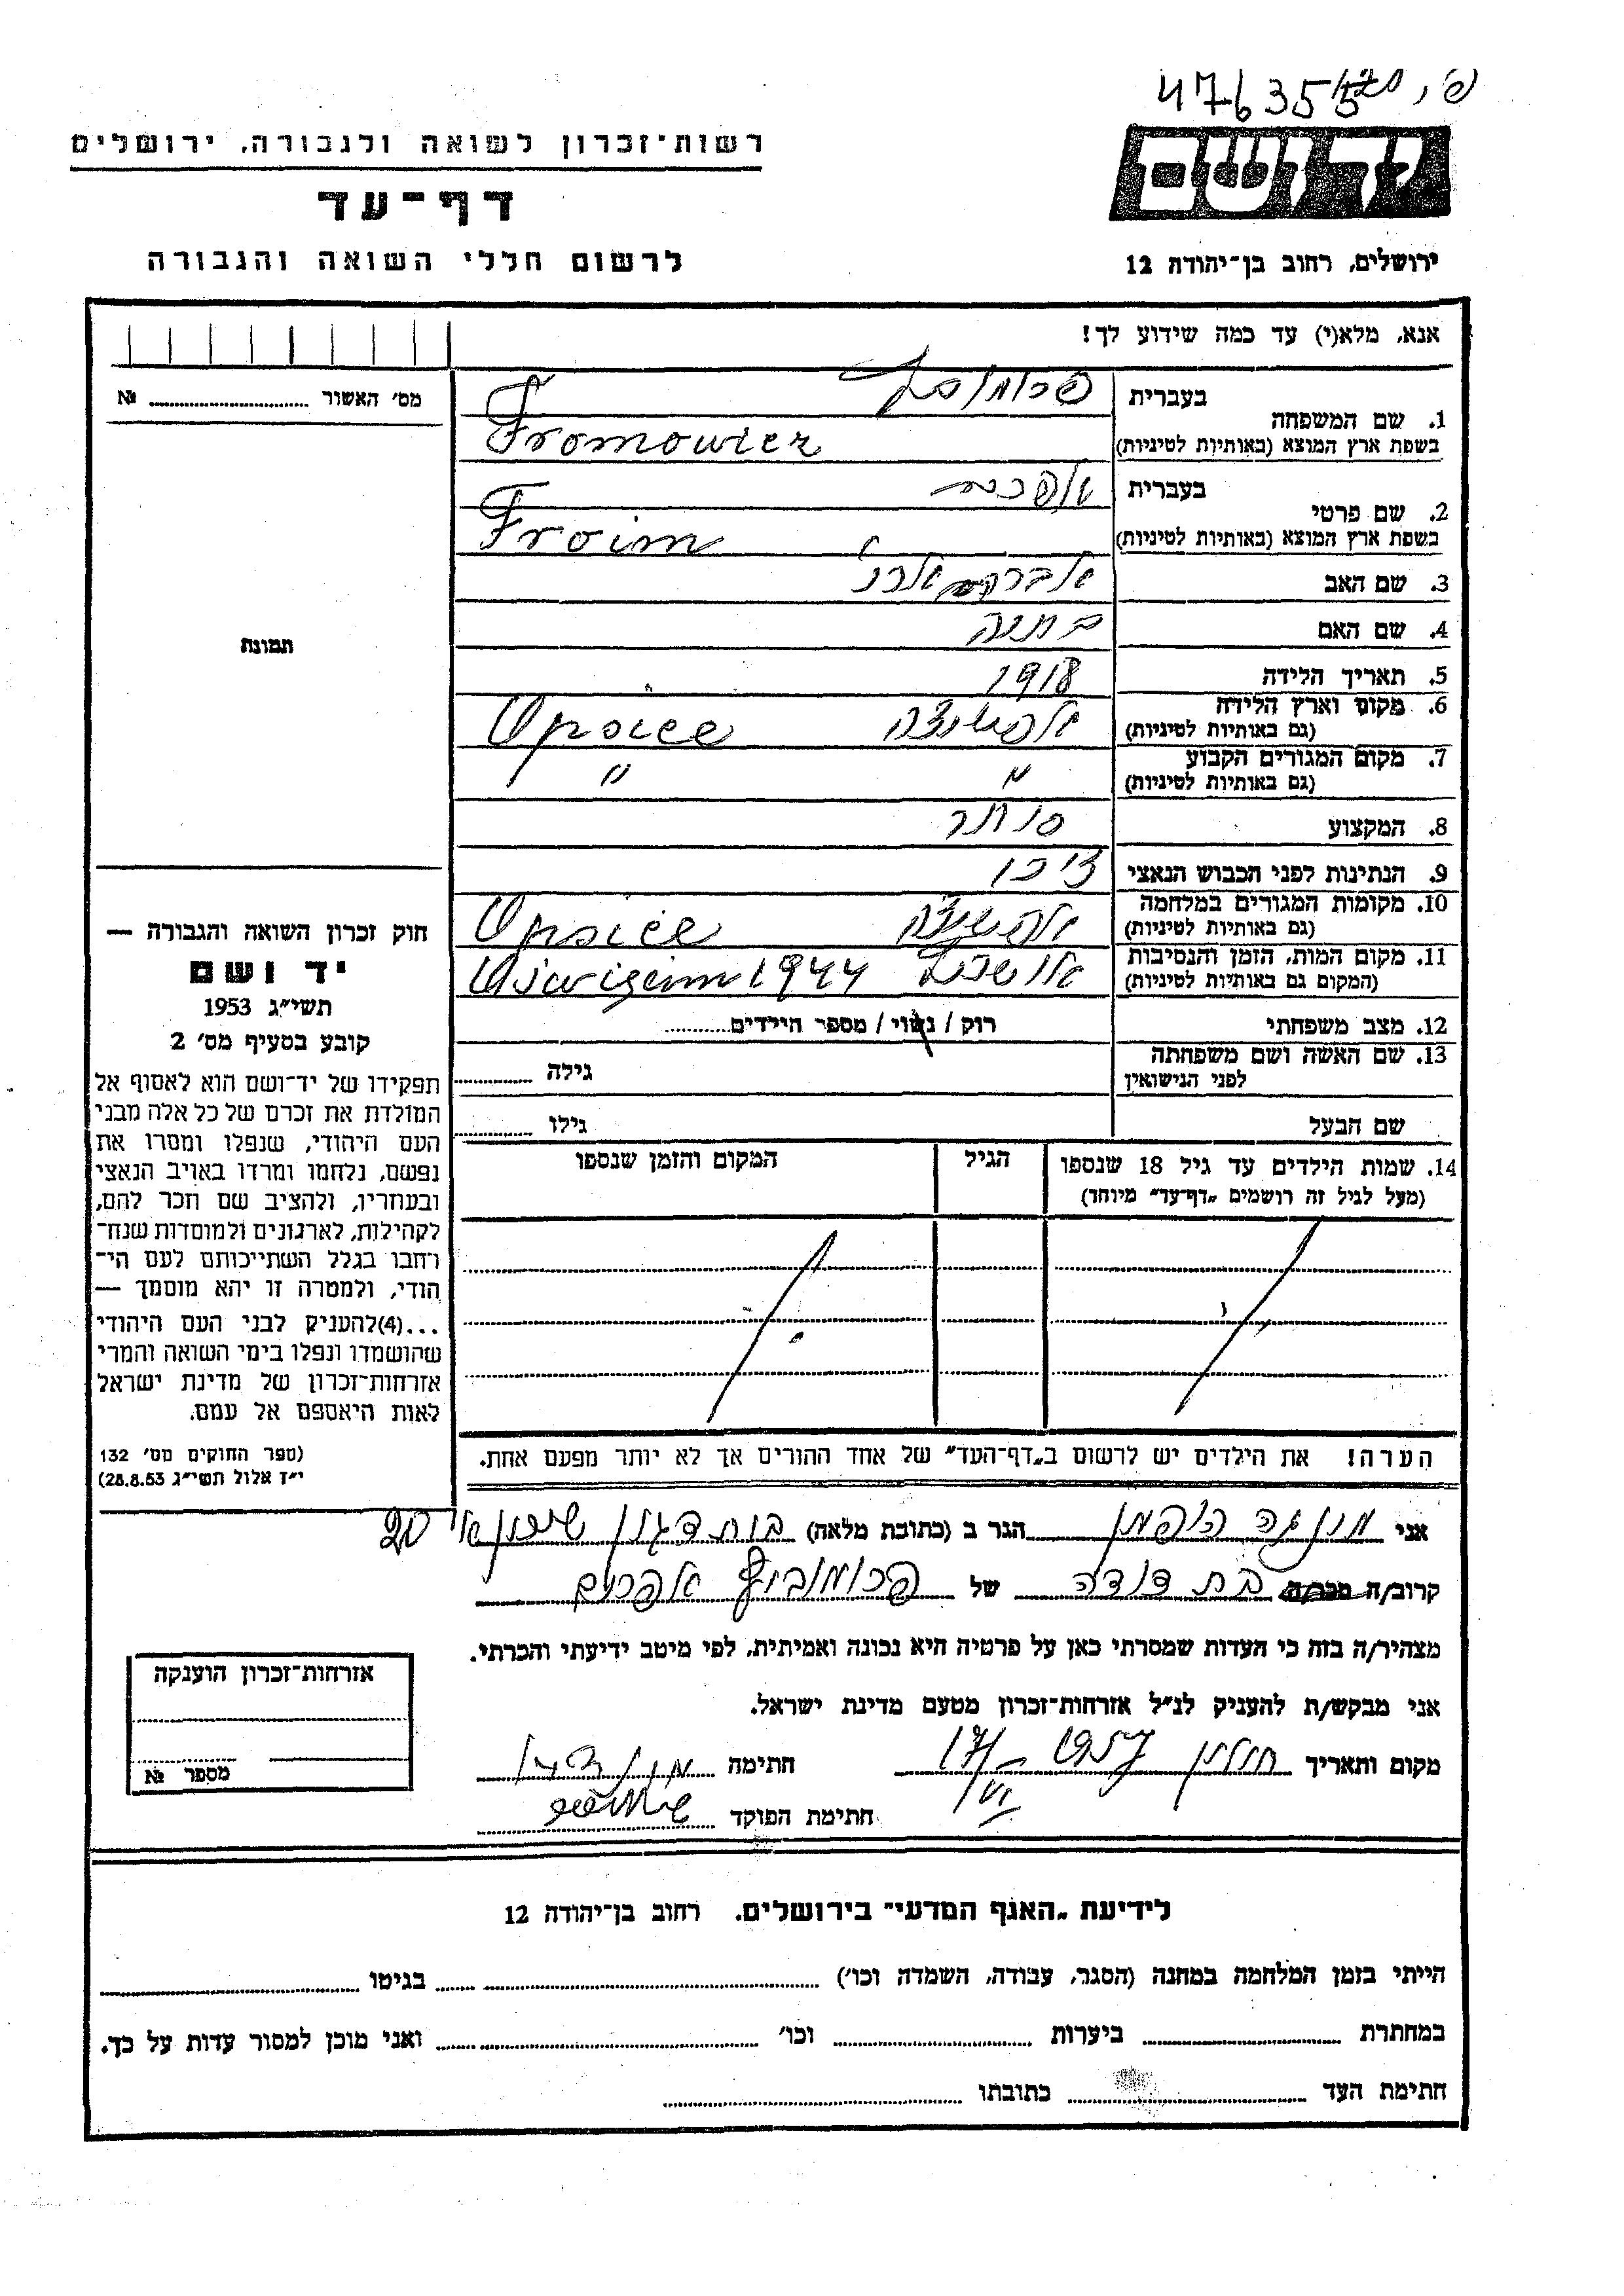 476355
יד ושם
רשות-זכרון לשואה ולגבורה, ירושלים
דף-עד
לרשום חללי השואה והגבורה
ירושלים, רחוב בן-יהודה 12
אנא, מלא(י) עד כמה שידוע לך!
מס׳ האשור № 
תמונה
1. שם המשפחה
בעברית
בשפת ארץ המוצא (באותיות לטיניות) Fromowicz
2. שם פרטי
בעברית אפרים
בשפת ארץ המוצא (באותיות לטיניות) Froim
3. שם האב
4. שם האם
5. תאריך הלידה 1918
6. מקום וארץ הלידה
(גם באותיות לטיניות) Opsice
7. מקום המגורים הקבוע
(גם באותיות לטיניות) " "
8. המקצוע סוחר
9. הנתינות לפני הכבוש הנאצי
10. מקומות המגורים במלחמה
(גם באותיות לטיניות) Opsice
11. מקום המות, הזמן והנסיבות
(המקום גם באותיות לטיניות) 1944
12. מצב משפחתי רוק / נשוי / מספר הילדים
13. שם האשה ושם משפחתה
לפני הנישואין גילה
שם הבעל גילו
14. שמות הילדים עד גיל 18 שנספו
(מעל לגיל זה רושמים „דף-עד״ מיוחד)
הגיל
המקום והזמן שנספו
הערה! את הילדים יש לרשום ב„דף-העד״ של אחד ההורים אך לא יותר מפעם אחת.
חוק זכרון השואה והגבורה —
יד ושם
תשי״ג 1953
קובע בסעיף מס׳ 2
תפקידו של יד-ושם הוא לאסוף אל
המולדת את זכרם של כל אלה מבני
העם היהודי, שנפלו ומסרו את
נפשם, נלחמו ומרדו באויב הנאצי
ובעוזריו, ולהציב שם וזכר להם,
לקהילות, לארגונים ולמוסדות שנח־
רבו בגלל השתייכותם לעם הי־
הודי, ולמטרה זו יהא מוסמך —
...(4)להעניק לבני העם היהודי
שהושמדו ונפלו בימי השואה והמרי
אזרחות-זכרון של מדינת ישראל
לאות היאספם אל עמם.
(ספר החוקים מס׳ 132
י״ז אלול תשי״ג 28.8.53)
אני הגר ב (כתובת מלאה) בית דגון
קרוב/ה מכר/ה בת דודה של פרומוביץ אפרים
מצהיר/ה בזה כי העדות שמסרתי כאן על פרטיה היא נכונה ואמיתית, לפי מיטב ידיעתי והכרתי.
אני מבקש/ת להעניק לנ״ל אזרחות-זכרון מטעם מדינת ישראל.
מקום ותאריך חולון 1957 17/VI חתימה
חתימת הפוקד
אזרחות-זכרון הוענקה
מספר №
לידיעת „האגף המדעי״ בירושלים. רחוב בן-יהודה 12
הייתי בזמן המלחמה במחנה (הסגר, עבודה, השמדה וכו׳) בגיטו
במחתרת ביערות וכו׳ ואני מוכן למסור עדות על כך.
חתימת העד כתובתו